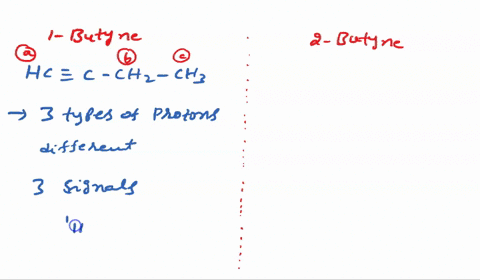 1- Butyne
a b c
HC ≡ C - CH2 - CH3
→ 3 types of Protons
different
3 signals
2- Butyne